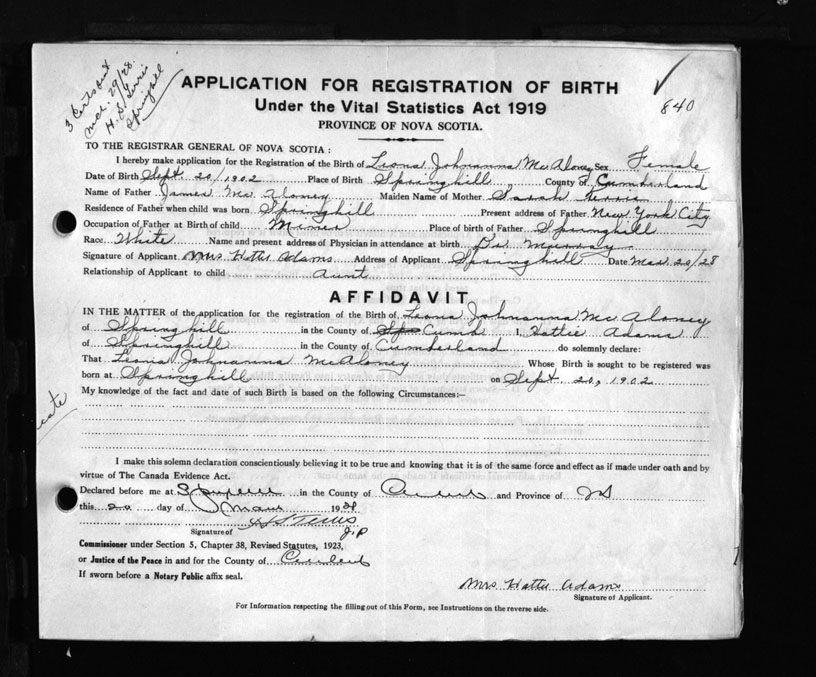 3 Certs sent
Mar. 29/28.
H. S. Terris
Springhill
840
APPLICATION FOR REGISTRATION OF BIRTH
Under the Vital Statistics Act 1919
PROVINCE OF NOVA SCOTIA.
TO THE REGISTRAR GENERAL OF NOVA SCOTIA :
I hereby make application for the Registration of the Birth of Leona Johnanna McAloney Sex Female
Date of Birth Sept. 20/1902 Place of Birth Springhill County of Cumberland
Name of Father James McAloney Maiden Name of Mother Sarah
Residence of Father when child was born Springhill Present address of Father New York City
Occupation of Father at Birth of child Miner Place of birth of Father Springhill
Race White Name and present address of Physician in attendance at birth Dr Murray
Signature of Applicant Mrs Hattie Adams Address of Applicant Springhill Date Mar 20/28
Relationship of Applicant to child aunt
AFFIDAVIT
IN THE MATTER of the application for the registration of the Birth of Leona Johnanna McAloney
of Springhill in the County of Cumb I, Hattie Adams
of Springhill in the County of Cumberland do solemnly declare:
That Leona Johnanna McAloney Whose Birth is sought to be registered was
born at Springhill on Sept. 20, 1902
My knowledge of the fact and date of such Birth is based on the following Circumstances:—
I make this solemn declaration conscientiously believing it to be true and knowing that it is of the same force and effect as if made under oath and by
virtue of The Canada Evidence Act.
Declared before me at in the County of and Province of NS
this 20 day of 1928
Signature of J.P
Commissioner under Section 5, Chapter 38, Revised Statutes, 1923,
or Justice of the Peace in and for the County of
If sworn before a Notary Public affix seal.
Mrs Hattie Adams
Signature of Applicant.
For Information respecting the filling out of this Form, see Instructions on the reverse side.